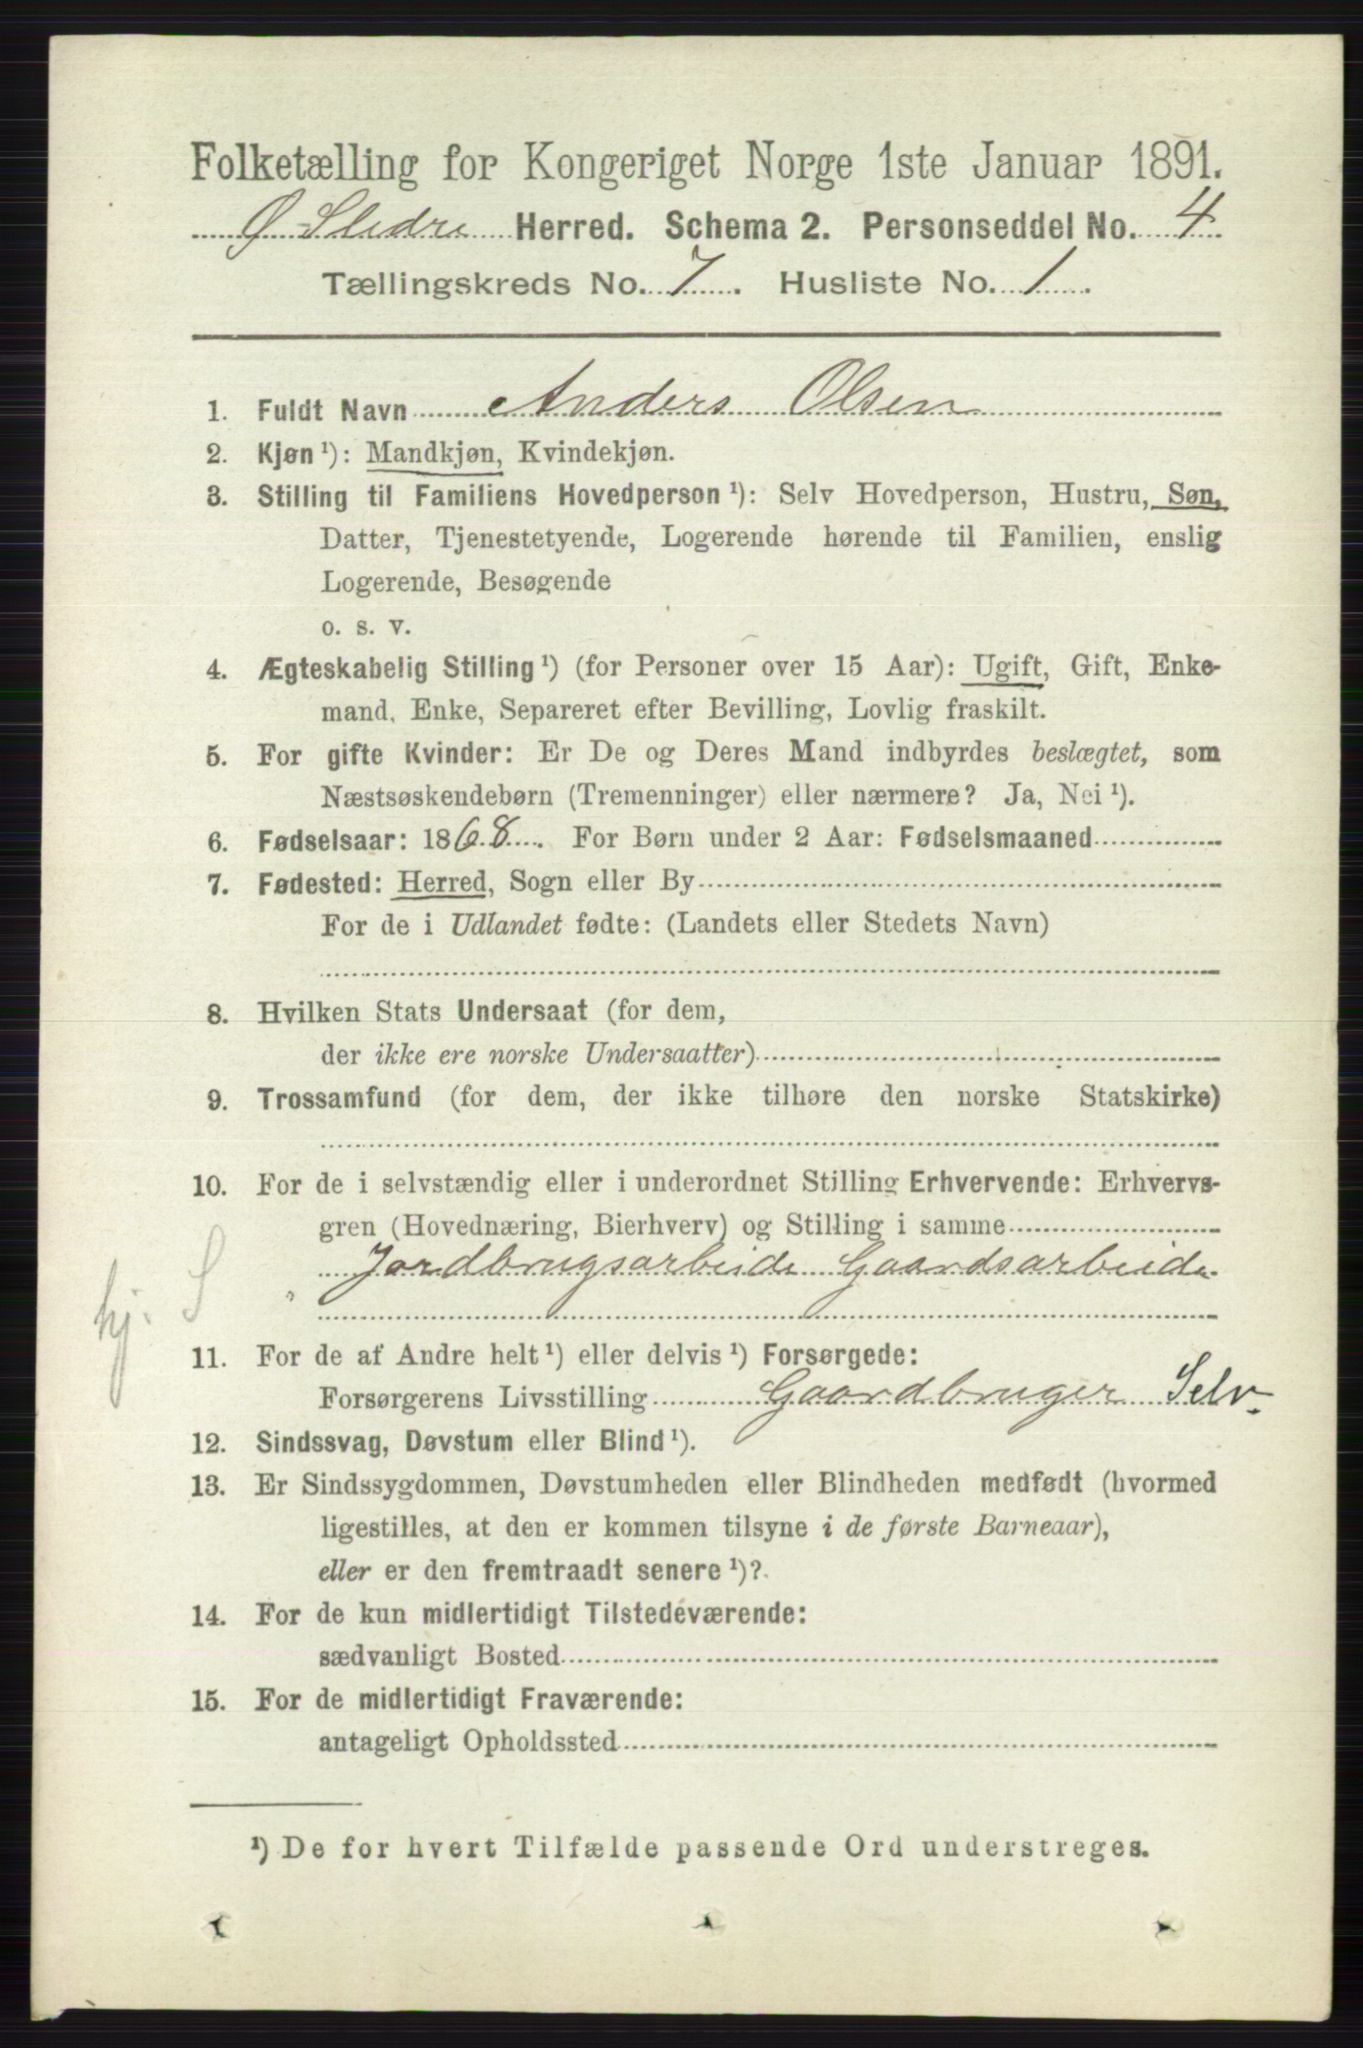 Folketælling for Kongeriget Norge 1ste Januar 1891.
Ø Slidre Herred. Schema 2. Personseddel No. 4
Tællingskreds No. 7. Husliste No. 1.
1. Fuldt Navn Anders Olsen
2. Kjøn ¹): Mandkjøn, Kvindekjøn.
3. Stilling til Familiens Hovedperson ¹): Selv Hovedperson, Hustru, Søn,
Datter, Tjenestetyende, Logerende hørende til Familien, enslig
Logerende, Besøgende
o. s. v.
4. Ægteskabelig Stilling ¹) (for Personer over 15 Aar): Ugift, Gift, Enke-
mand, Enke, Separeret efter Bevilling, Lovlig fraskilt.
5. For gifte Kvinder: Er De og Deres Mand indbyrdes beslægtet, som
Næstsøskendebørn (Tremenninger) eller nærmere? Ja, Nei ¹).
6. Fødselsaar: 1868. For Børn under 2 Aar: Fødselsmaaned
7. Fødested: Herred, Sogn eller By
For de i Udlandet fødte: (Landets eller Stedets Navn)
8. Hvilken Stats Undersaat (for dem,
der ikke ere norske Undersaatter)
9. Trossamfund (for dem, der ikke tilhøre den norske Statskirke)
10. For de i selvstændig eller i underordnet Stilling Erhvervende: Erhvervs-
gren (Hovednæring, Bierhverv) og Stilling i samme
Jordbrugsarbeide Gaardsarbeide
hj. S
11. For de af Andre helt ¹) eller delvis ¹) Forsørgede:
Forsørgerens Livsstilling Gaardbruger Selv.
12. Sindssvag, Døvstum eller Blind ¹).
13. Er Sindssygdommen, Døvstumheden eller Blindheden medfødt (hvormed
ligestilles, at den er kommen tilsyne i de første Barneaar),
eller er den fremtraadt senere ¹)?
14. For de kun midlertidigt Tilstedeværende:
sædvanligt Bosted
15. For de midlertidigt Fraværende:
antageligt Opholdssted
¹) De for hvert Tilfælde passende Ord understreges.